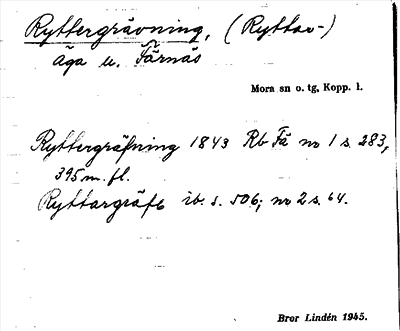 Ryttergrävning, (Ryttar-)
äga u. Färnäs
Mora sn o. tg, Kopp. l.
Ryttergräfning 1843 Rb Fä no 1 s. 283,
395 m. fl.
Ryttargräfs ib. s. 506; no 2 s. 64.
Bror Lindén 1945.